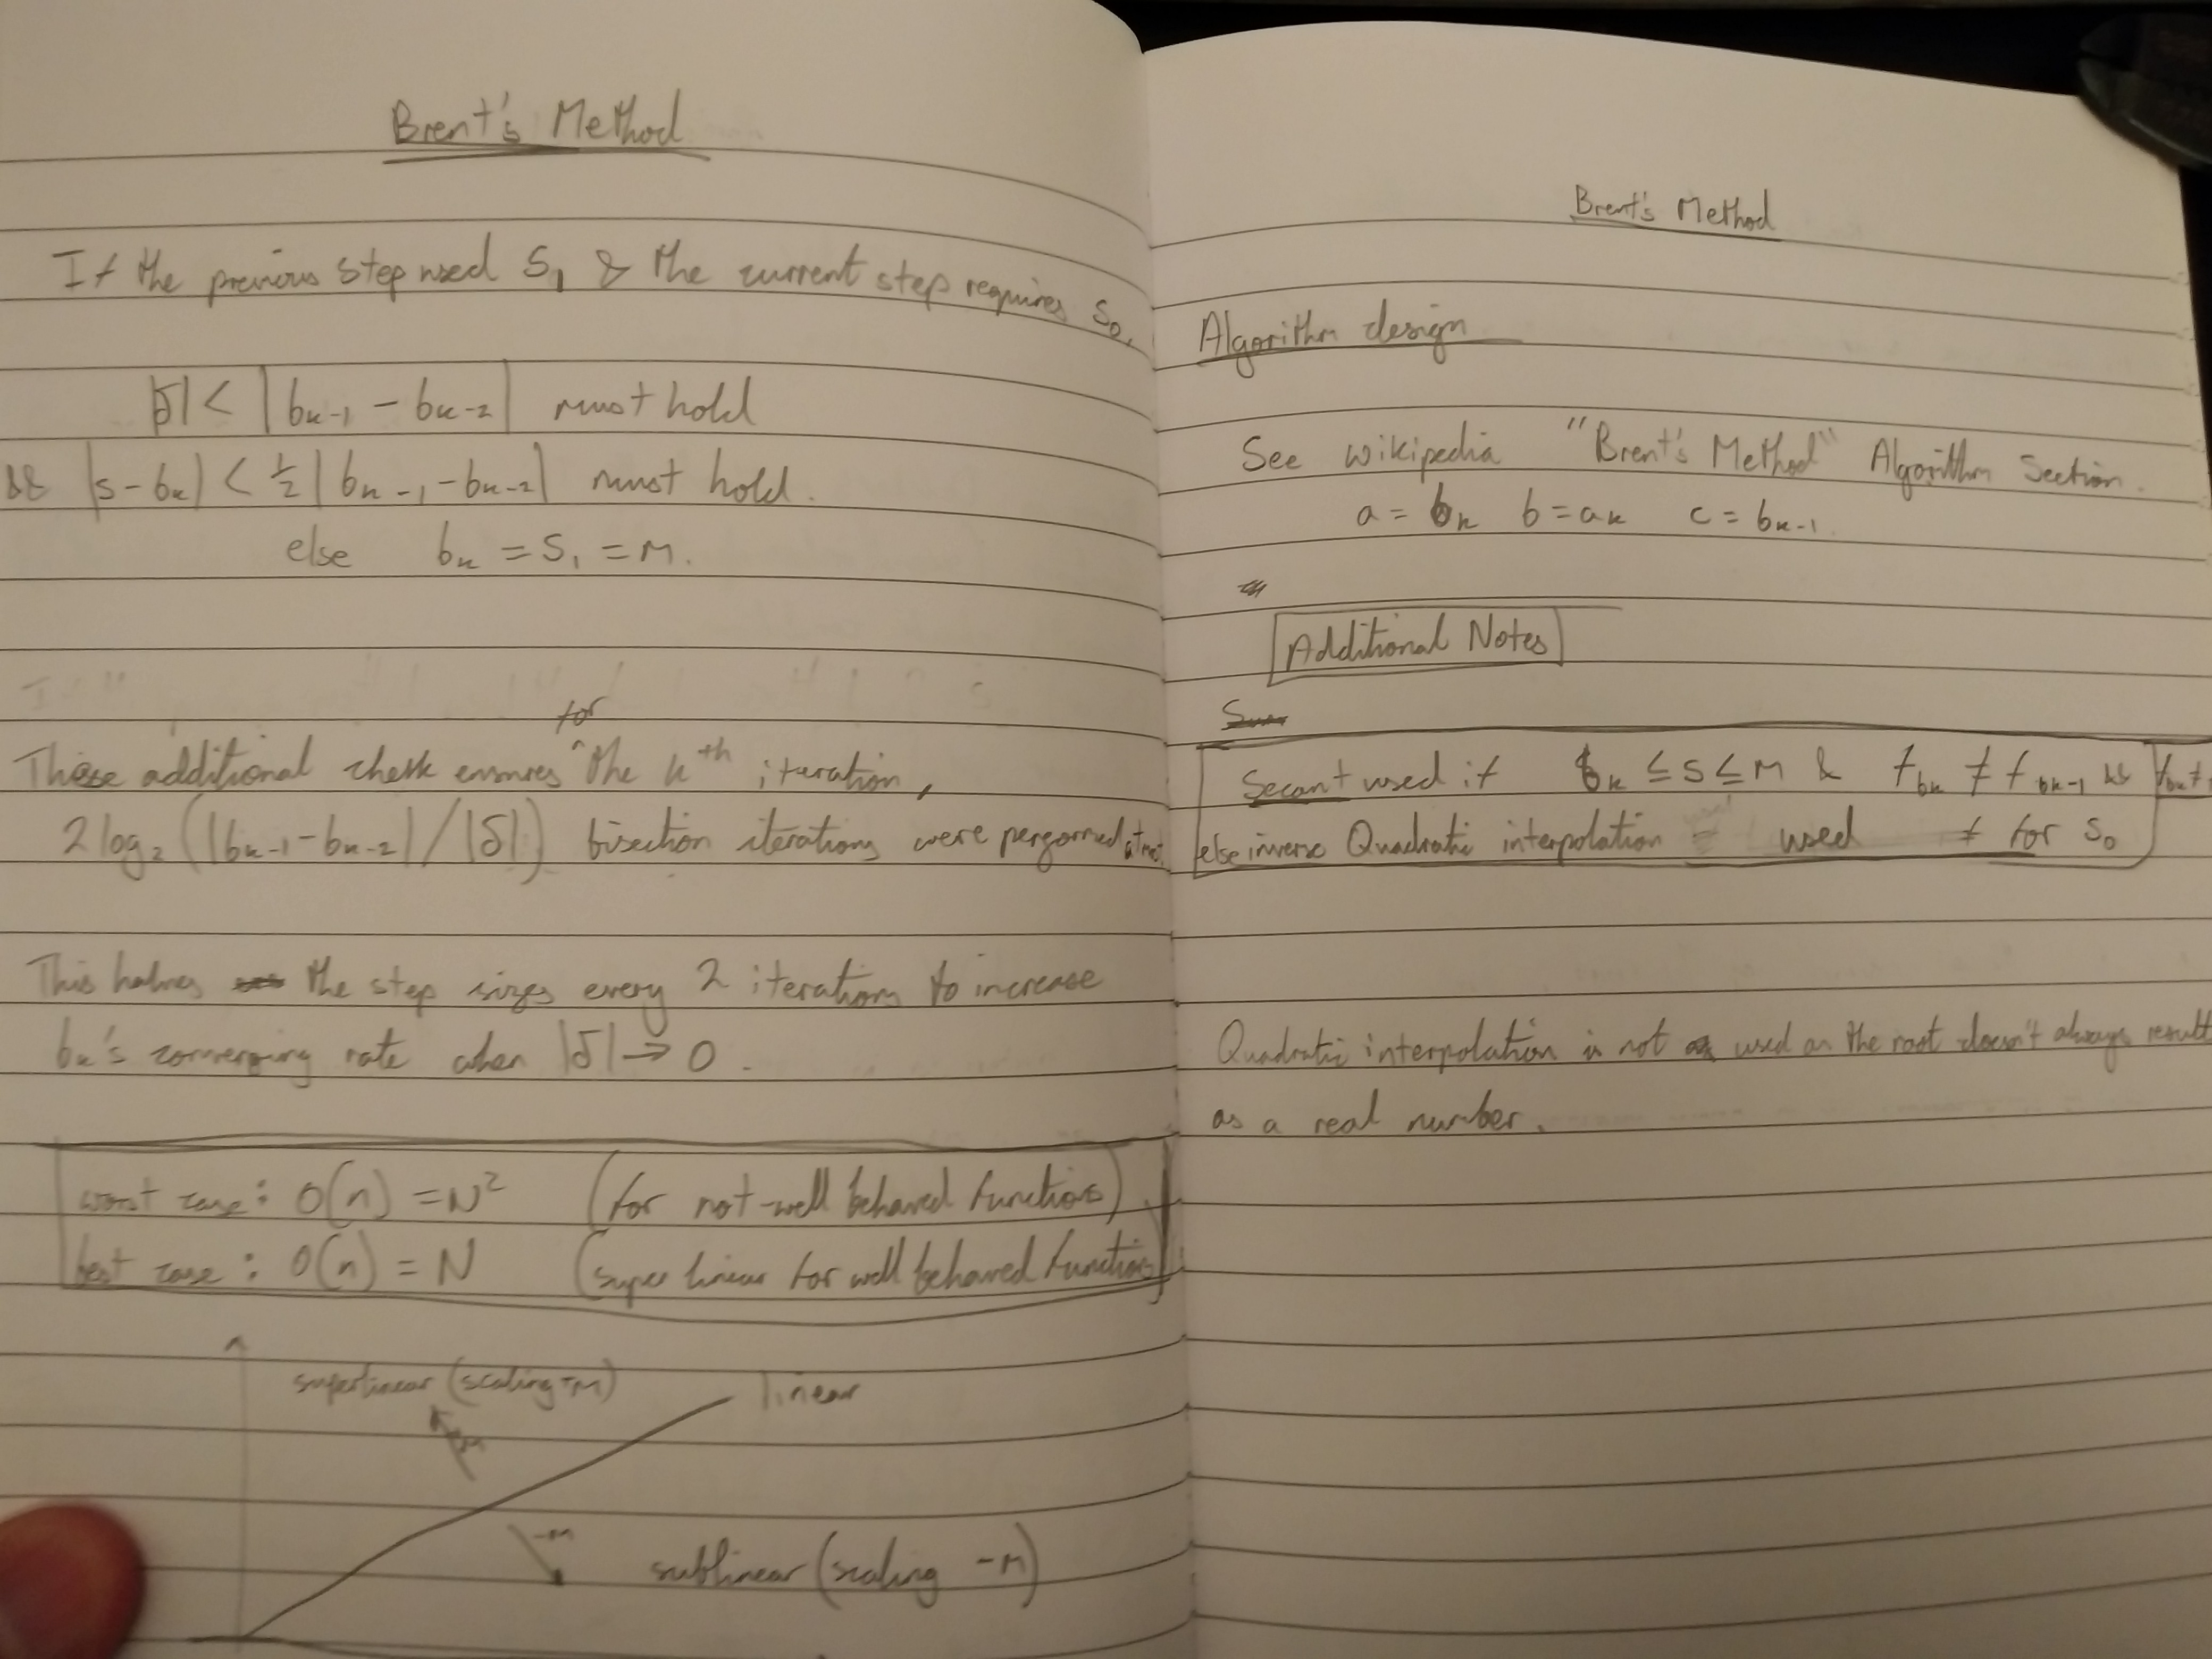 Brent's Method
If the previous step used S₁ & the current step requires S₀,
|δ| < |bₖ₋₁ - bₖ₋₂| must hold
&& |s - bₖ| < ½ |bₖ₋₁ - bₖ₋₂| must hold.
else bₖ = S₁ = M.
for
These additional check ensures the kᵗʰ iteration,
2 log₂ (|bₖ₋₁ - bₖ₋₂| / |δ|) bisection iterations were pergormed at most.
This halves the step sizes every 2 iterations to increase
bₖ's converging rate when |δ| → 0.
worst case: O(n) = N² (for not-well behaved functions)
best case: O(n) = N (super linear for well behaved functions)
superlinear (scaling +M) linear
-M
sublinear (scaling -M)
Brent's Method
Algorithm design
See wikipedia "Brent's Method" Algorithm Section.
a = bₖ b = aₖ c = bₖ₋₁.
Additional Notes
Secant used if bₖ ≤ S ≤ M & f bₖ ≠ f bₖ₋₁ &&
else inverse Quadratic interpolation used for S₀
Quadratic interpolation is not used as the root doesn't always result
as a real number.